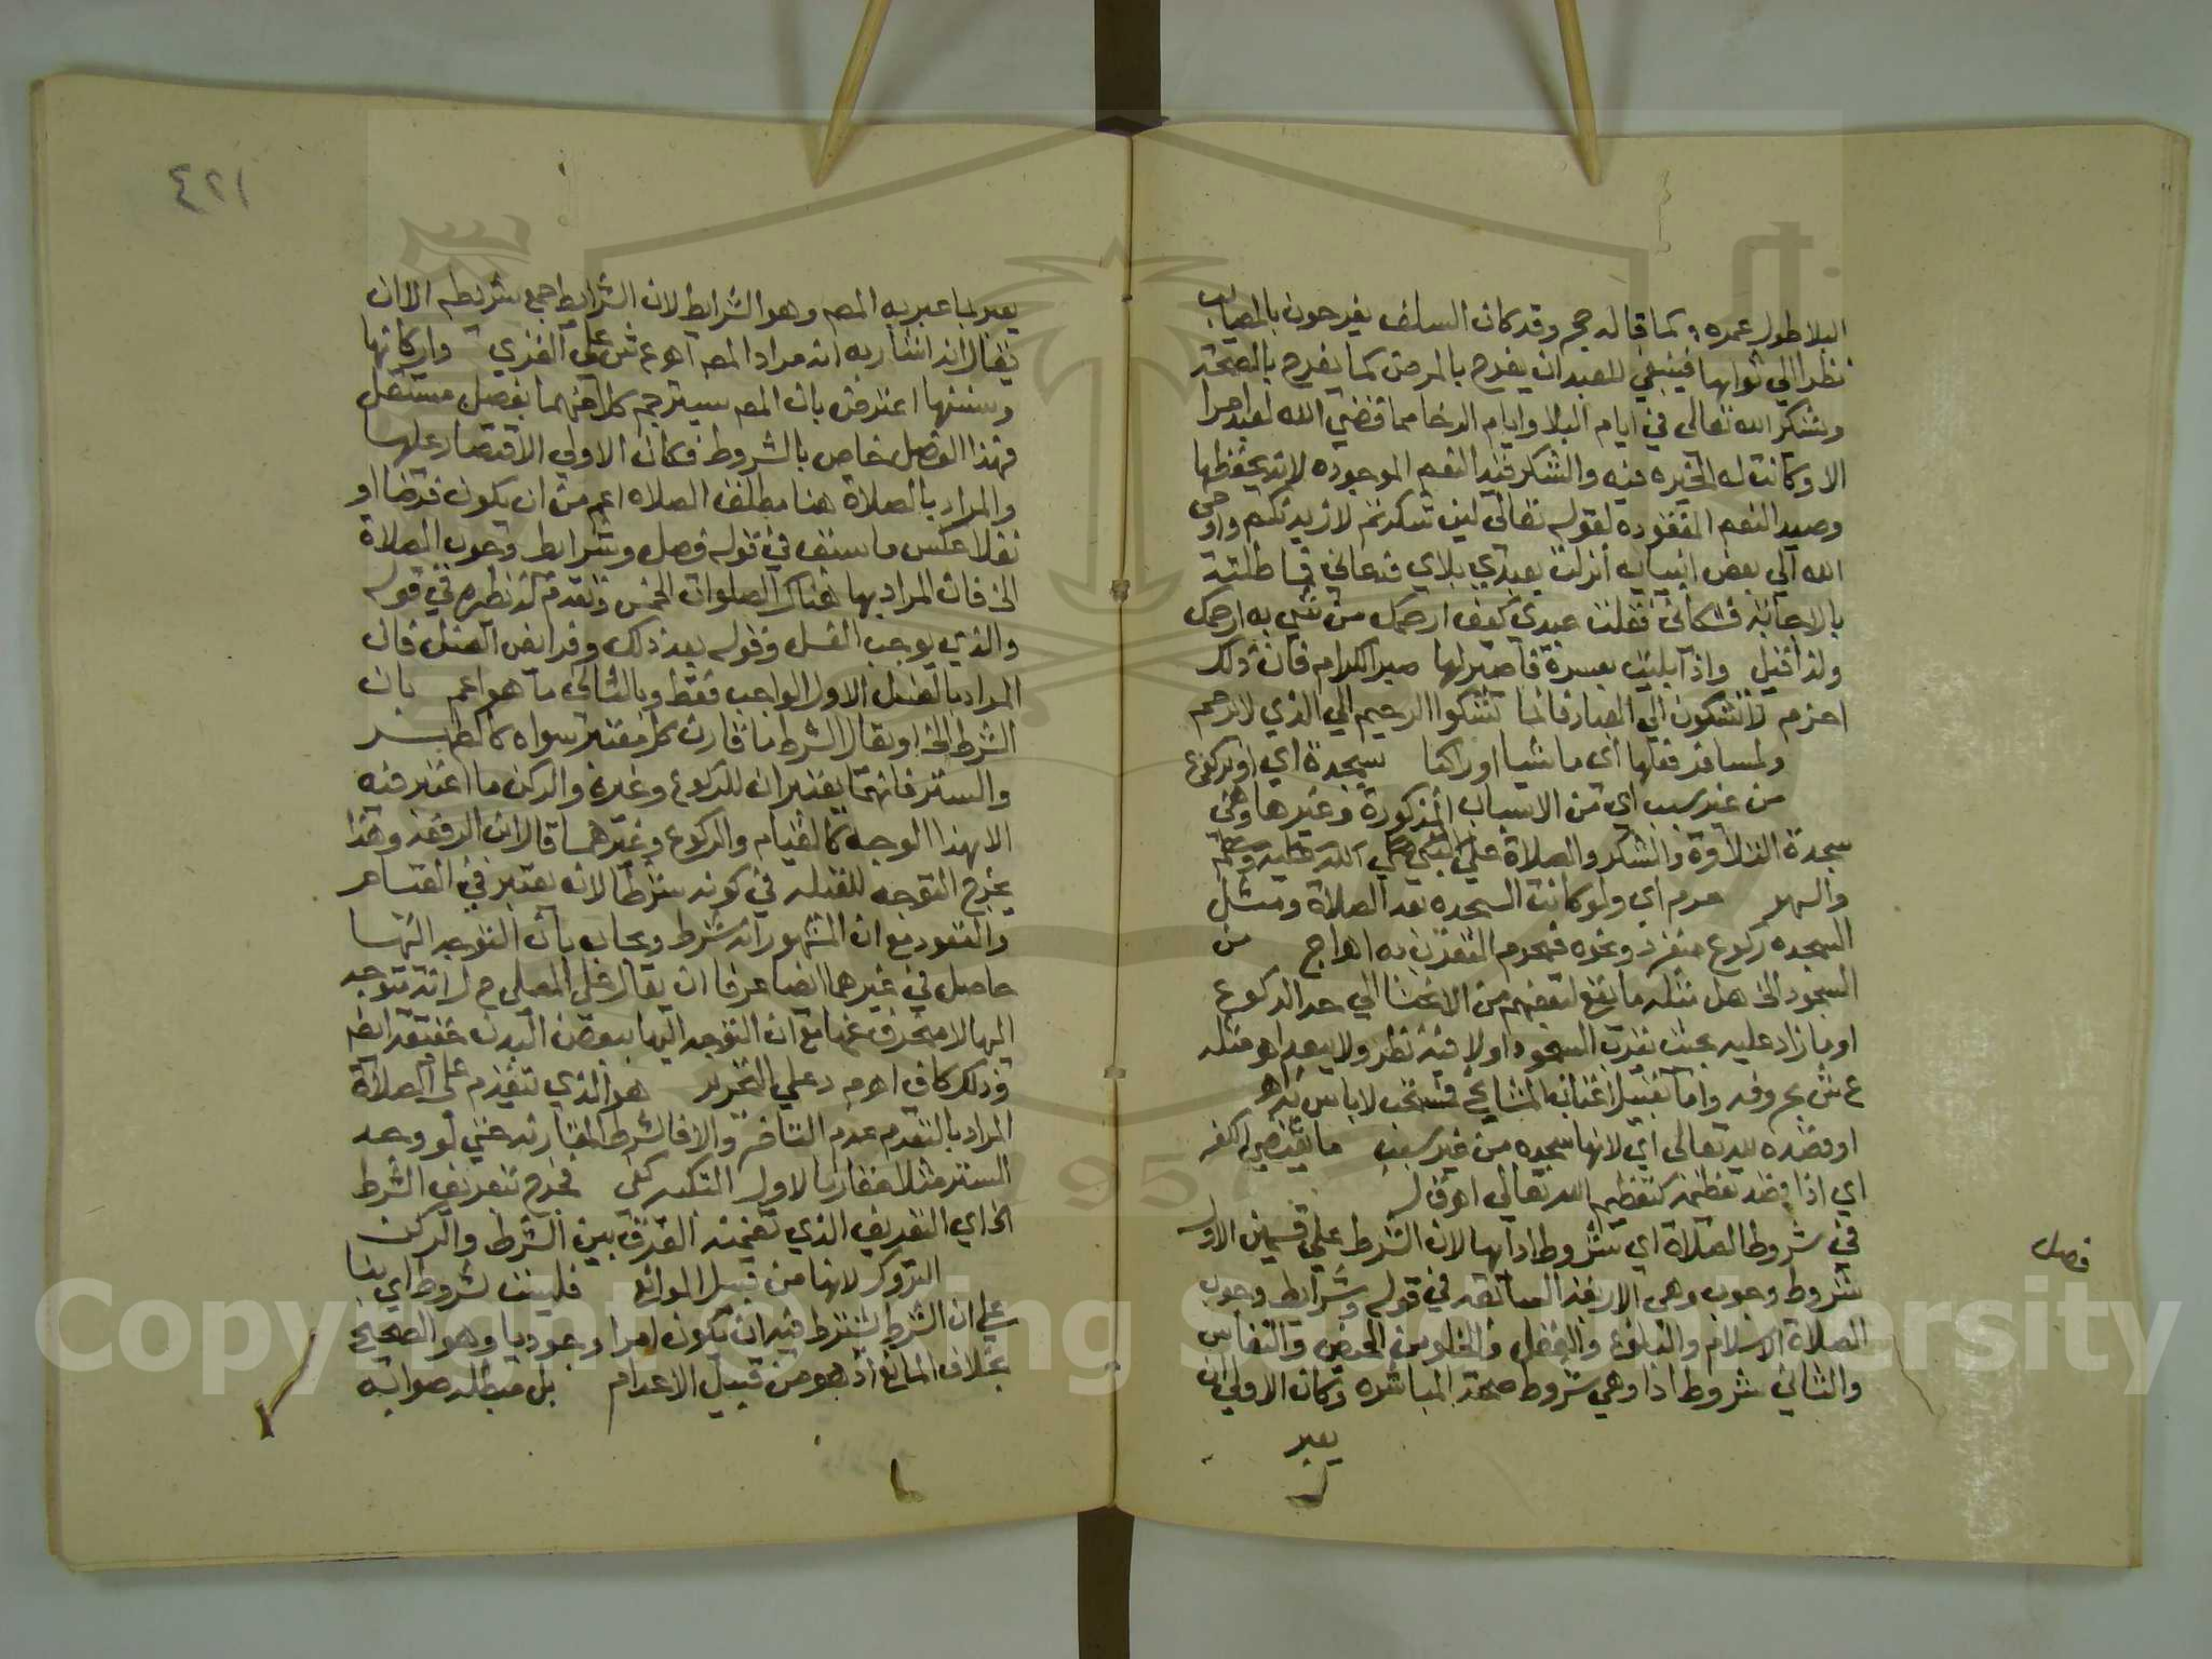 البلا طول عمره كما قاله حج وقد كان السلف يفرحون بالمصايب
نظرا الي ثوابها فينبغي للعبد ان يفرح بالمرض كما يفرح بالصحة
ويشكر الله تعالى في ايام البلا وايام الرخا مما قضي الله لعبد امرا
الا وكانت له الخيره فيه والشكر قيد النعم الموجوده لانه يحفظها
وصيد النعم المفقوده لقوله تعالى لين شكرتم لازيدنكم واوحى
الله الي بعض انبيايه أنزلت بعبدي بلاي فدعاني فماطلته
بالاجابة فشكاني فقلت عبدي كيف ارحمك من شي به ارحمك
ولذا قيل واذا بليت بعسرة فاصبر لها صبر الكرام فان ذلك
احزم لا تشكون الي العباد فانما تشكوا الرحيم الي الذي لا يرحم
ولمسافر فعلها أي ماشيا او راكبا سجدة اي او ركوع
من غير سبب اي من الاسباب المذكورة وغيرها وهي
سجدة التلاوة والشكر والصلاة على النبي صلى الله عليه وسلم
والسهو حرم أي ولو كانت السجده بعد الصلاة ومثل
السجده ركوع منفرد ونحوه فيحرم التقرب به اهـ اج من
السجود الخ هل مثله ما يقع لبعضهم من الانحنا الي حد الركوع
او ما زاد عليه بحيث يقرب السجود او لا فيه نظر ولا يبعد انه مثله
ع ش بحروفه واما تقبيل اعتاب المشايخ فمستحب لا باس به اهـ
او قصده لله تعالى أي لانها سجده من غير سبب ما يقتضي الكفر
اي اذا قصد تعظيمه كتعظيم الله تعالى اهـ ق ل
فصل
في شروط الصلاة اي شروط ادايها لان الشرط علي قسمين الاول
شروط وجوب وهي الاربعة السابقه في قوله وشرايط وجوب
الصلاة الاسلام والبلوغ والعقل والخلو من الحيض والنفاس
والثاني شروط ادا وهي شروط صحة المباشره وكان الاولي ان
يعبر
٤٢١
يعبر بما عبر به المصـ وهو الشرايط لان الشرايط جمع شريطه الا ان
يقال انه اشار به انه مراد المصـ اهـ ع ش على الغزي واركانها
وسننها اعترض بان المصـ سيترجم كلا منهما بفصل مستقل
فهذا الفصل خاص بالشروط فكان الاولي الاقتصار عليها
والمراد بالصلاة هنا مطلق الصلاه اعم من ان يكون فرضا او
نفلا عكس ما سبق في قوله فصل وشرايط وجوب الصلاة
الخ فان المراد بها هناك الصلوات الخمس وتقدم له نظيره في قوله
والذي يوجب الغسل وقوله بعد ذلك وفرايض الغسل فان
المراد بالغسل الاول الواجب فقط وبالثاني ما هو اعم بان
الشرط الخ او يقال الشرط ما قارن كل معتبر سواه كالطهر
والستر فانهما يعتبران للركوع وغيره والركن ما اعتبر فيه
الا بهذا الوجه كالقيام والركوع وغيرهما قال ابن الرفعه وهذا
يخرج التوجه للقبله في كونه شرطا لانه يعتبر في القيام
والقعود مع ان المشهور انه شرط ويجاب بان التوجه اليها
حاصل في غيرهما ايضا عرفا ان يقال على المصلي ح ل انه متوجه
اليها لا منحرف عنها مع ان التوجه اليها ببعض البدن حقيقة ايضا
وذلك كاف اهـ م د على التحرير هو الذي يتقدم على الصلاة
المراد بالتقدم عدم التاخر والا فالشرط المقارنه حتي لو وجد
الستر مثلا مقارنا لاول التكبير كفى فخرج تعريف الشرط
الخ اي التعريف الذي تضمنه الفرق بين الشرط والركن
التروك لانها من قبيل الموانع فليست لشروط اي بنا
علي ان الشرط يشترط فيه ان يكون امرا وجوديا وهو الصحيح
بخلاف المانع اذ هو من قبيل الاعدام بل مبطله صوابه
Copyright © King Saud University
1957